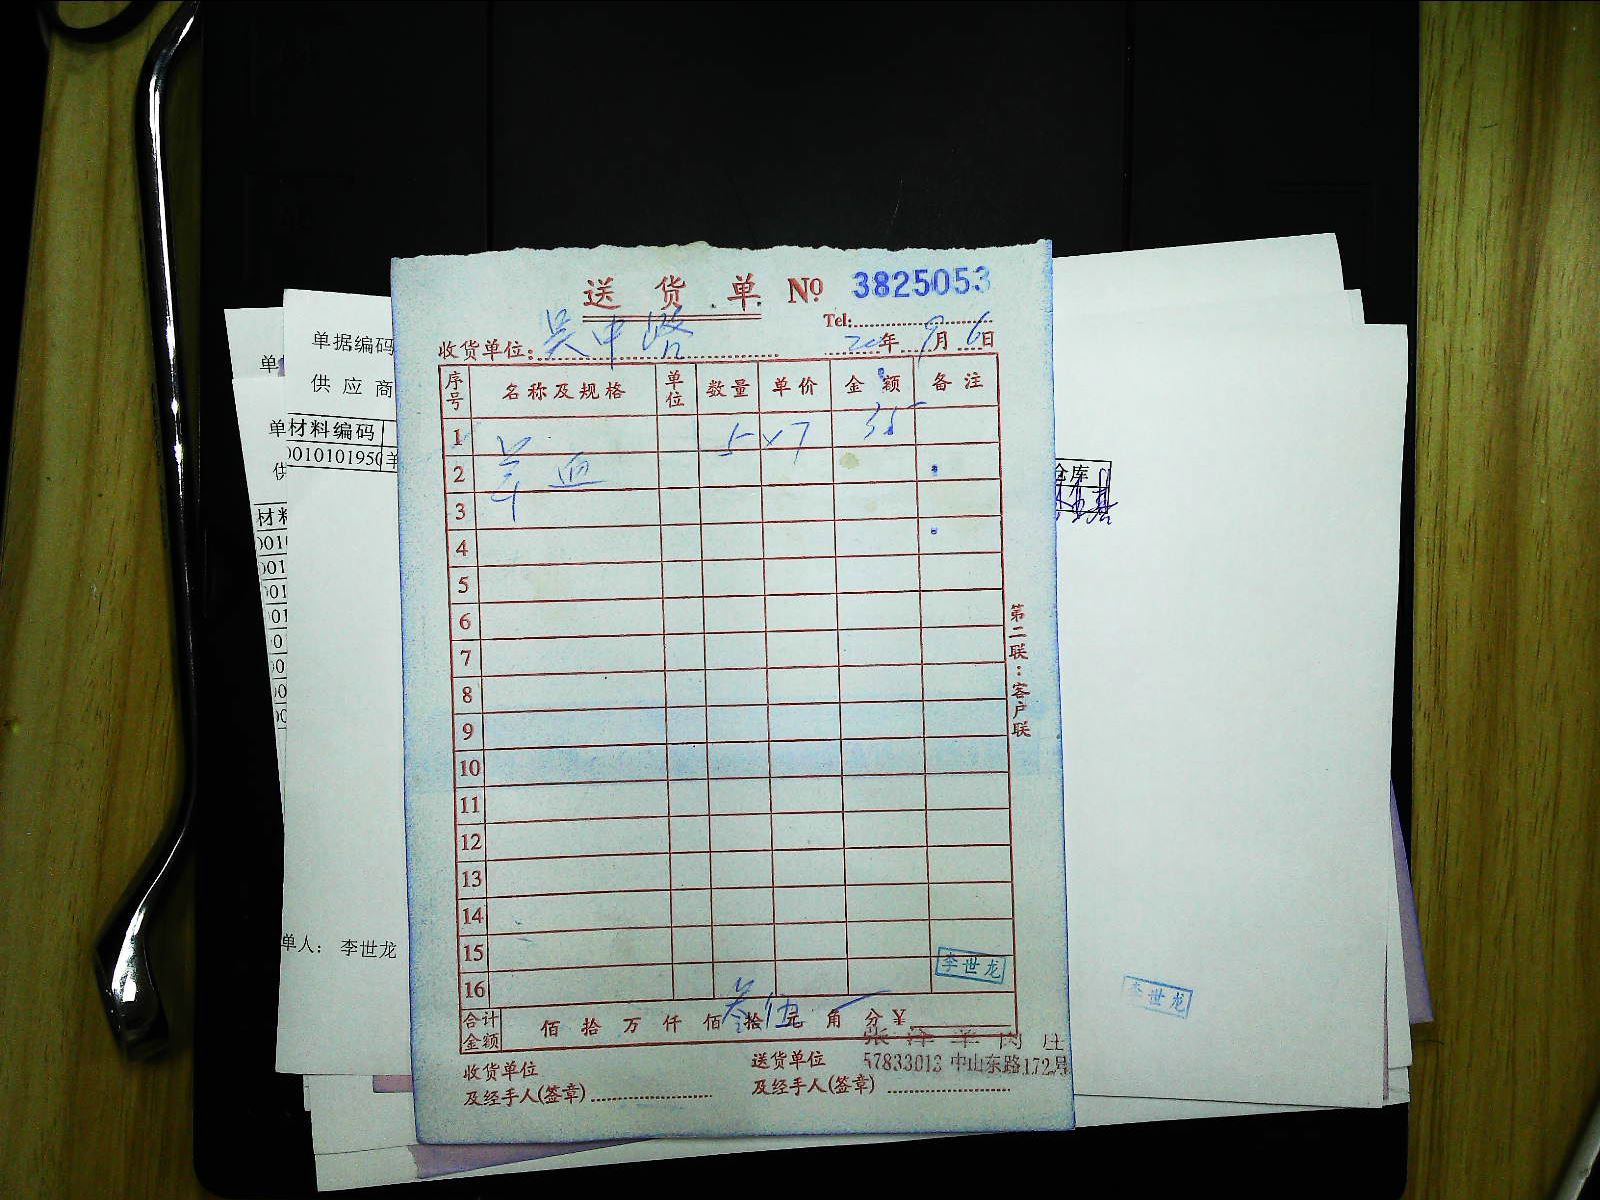 送货单 № 3825053
Tel:
收货单位: 吴中路 20年9月6日
序号 名称及规格 单位 数量 单价 金额 备注
1 羊血 5 x 7 35
2
3
4
5
6
7
8
9
10
11
12
13
14
15 李世龙
16
合计金额 佰拾万仟佰叁拾伍元角分 ¥
张泽羊肉庄
收货单位 送货单位 57833013 中山东路172号
及经手人(签章) 及经手人(签章)
第二联:客户联
单据编码
单
供应商
单材料编码
0010101950 羊
供
材料
单人: 李世龙
仓库
李世龙